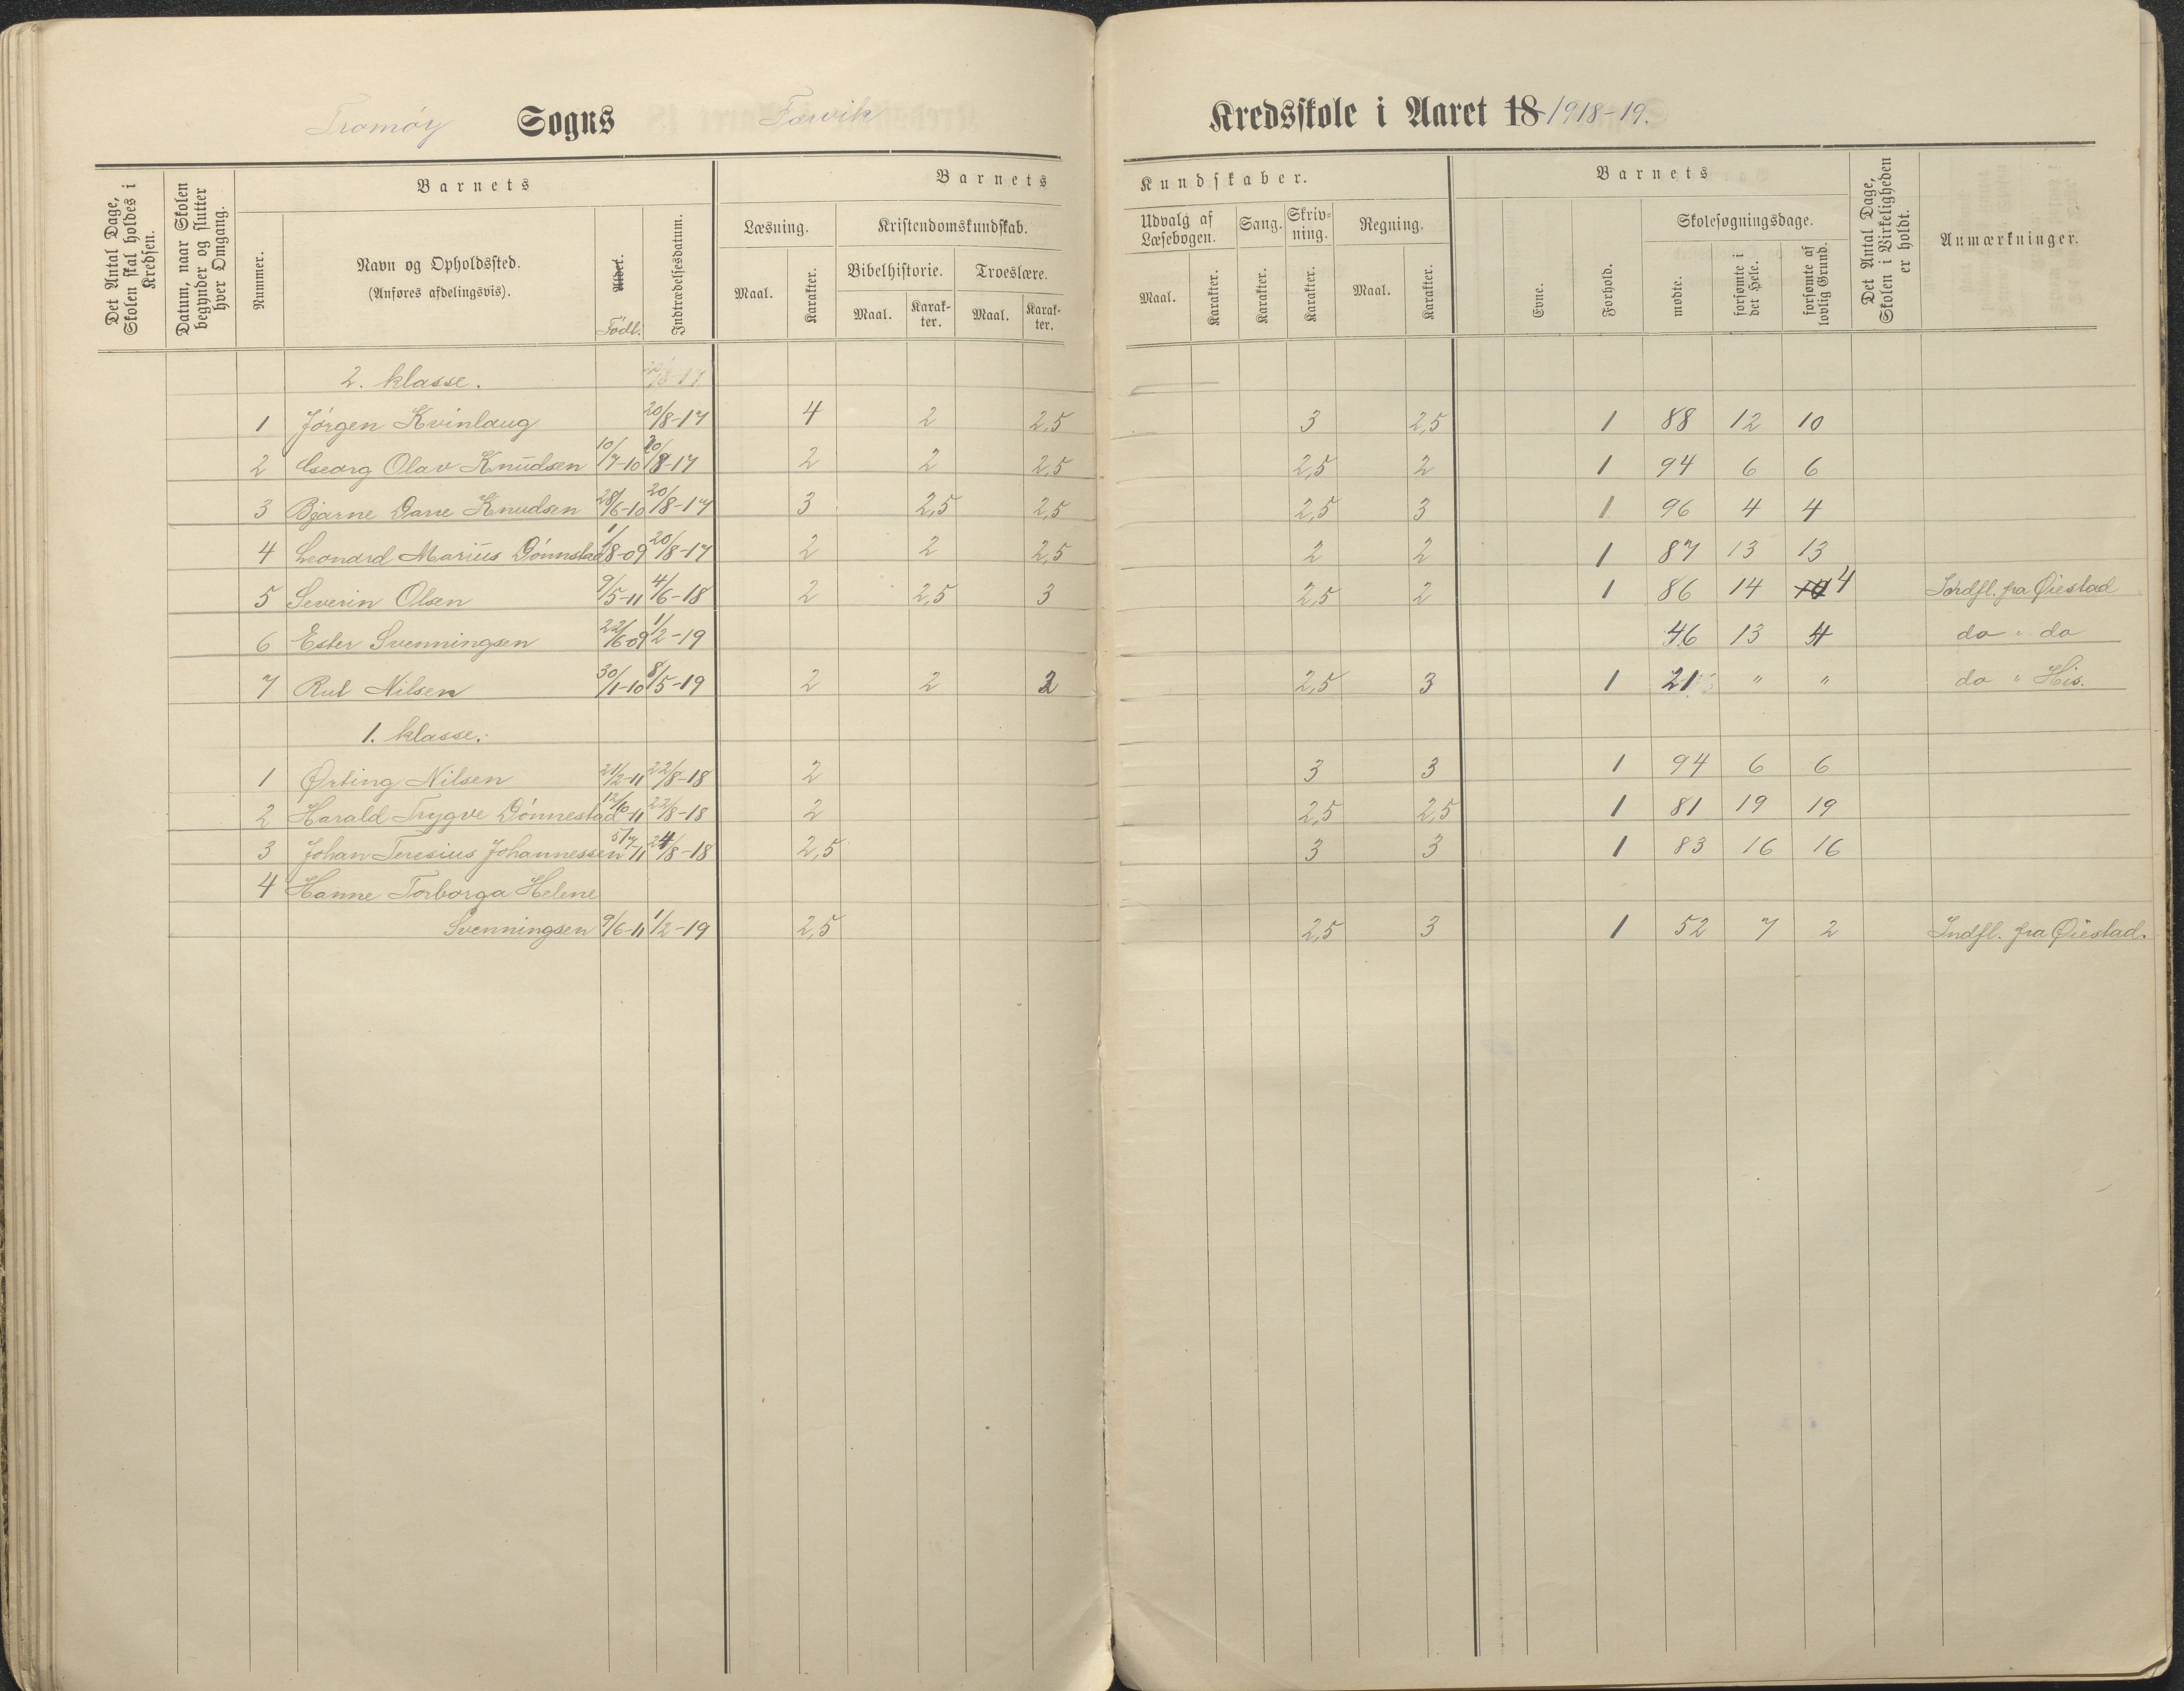 Tromøy Sogns Færvik Kredsskole i Aaret 18 1918-19.
Det Antal Dage, Skolen skal holdes i Kredsen.
Datum, naar Skolen begynder og slutter hver Omgang.
Barnets
Nummer.
Navn og Opholdssted.
(Anføres afdelingsvis).
Alder.
Født.
Indtrædelsesdatum.
Barnets Kundskaber.
Læsning.
Maal.
Karakter.
Kristendomskundskab.
Bibelhistorie.
Maal.
Karakter.
Troeslære.
Maal.
Karakter.
Udvalg af Læsebogen.
Maal.
Karakter.
Sang.
Karakter.
Skrivning.
Karakter.
Regning.
Maal.
Karakter.
Barnets
Evne.
Forhold.
Skolesøgningsdage.
mødte.
forsømte i det Hele.
forsømte af lovlig Grund.
Det Antal Dage, Skolen i Virkeligheden er holdt.
Anmærkninger.
2. klasse.
1 Jørgen Kvinlaug 20/8-17 4 2 2,5 3 2,5 1 88 12 10
2 Georg Olav Knudsen 10/7-10 20/8-17 2 2 2,5 2,5 2 1 94 6 6
3 Bjarne Dane Knudsen 28/6-10 20/8-17 3 2,5 2,5 2,5 3 1 96 4 4
4 Leonard Marius Dønnstad 1/8-09 20/8-17 2 2 2,5 2 2 1 87 13 13
5 Severin Olsen 9/5-11 4/6-18 2 2,5 3 2,5 2 1 86 14 4 Indfl. fra Øiestad
6 Ester Svenningsen 22/6-09 1/2-19 46 13 4 do " do
7 Rut Nilsen 30/1-10 8/5-19 2 2 2 2,5 3 1 21 " " do " His.
1. klasse.
1 Ørting Nilsen 21/2-11 22/8-18 2 3 3 1 94 6 6
2 Harald Trygve Dønnestad 12/10-11 22/8-18 2 2,5 2,5 1 81 19 19
3 Johan Teresius Johannessen 5/7-11 24/8-18 2,5 3 3 1 83 16 16
4 Hanne Torborga Helene
Svenningsen 9/6-11 1/2-19 2,5 2,5 3 1 52 7 2 Indfl. fra Øiestad.